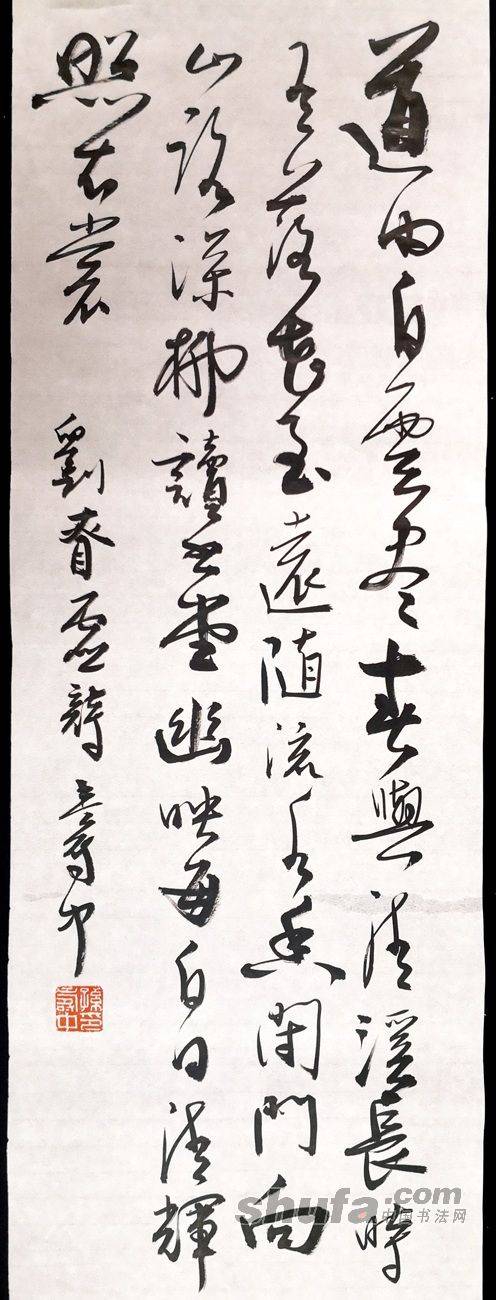 道由白雲尽春與清溪長時
有落花至遠随流水香閑門向
山路深柳讀書堂幽映每白日清輝
照衣裳 劉眘虛詩 壽中
shufa.com
中国书法网